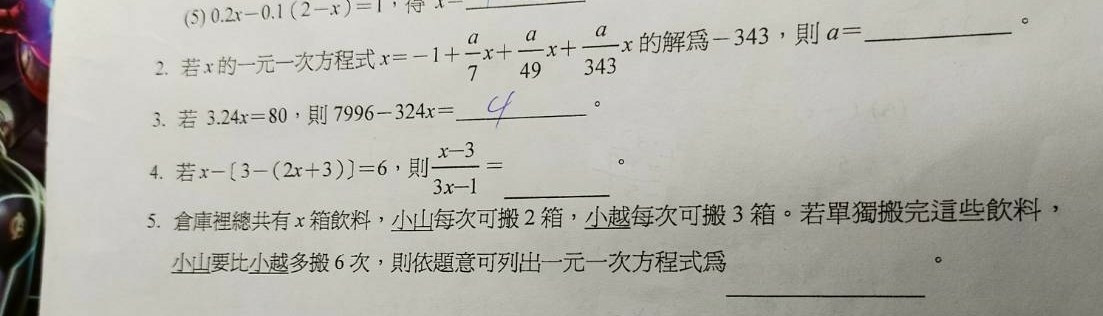 (5) 0.2x−0.1(2−x)=1，得 x=
2. 若 x 的一元一次方程式 x=−1+\frac{a}{7}x+\frac{a}{49}x+\frac{a}{343}x 的解爲−343，則 a=________。
3. 若 3.24x=80，則 7996−324x=4。
4. 若 x−[3−(2x+3)]=6，則 \frac{x−3}{3x−1}=________。
5. 倉庫裡總共有 x 箱飲料，小山每次可搬 2 箱，小越每次可搬 3 箱。若單獨搬完這些飲料，
小山要比小越多搬 6 次，則依題意可列出一元一次方程式爲________。